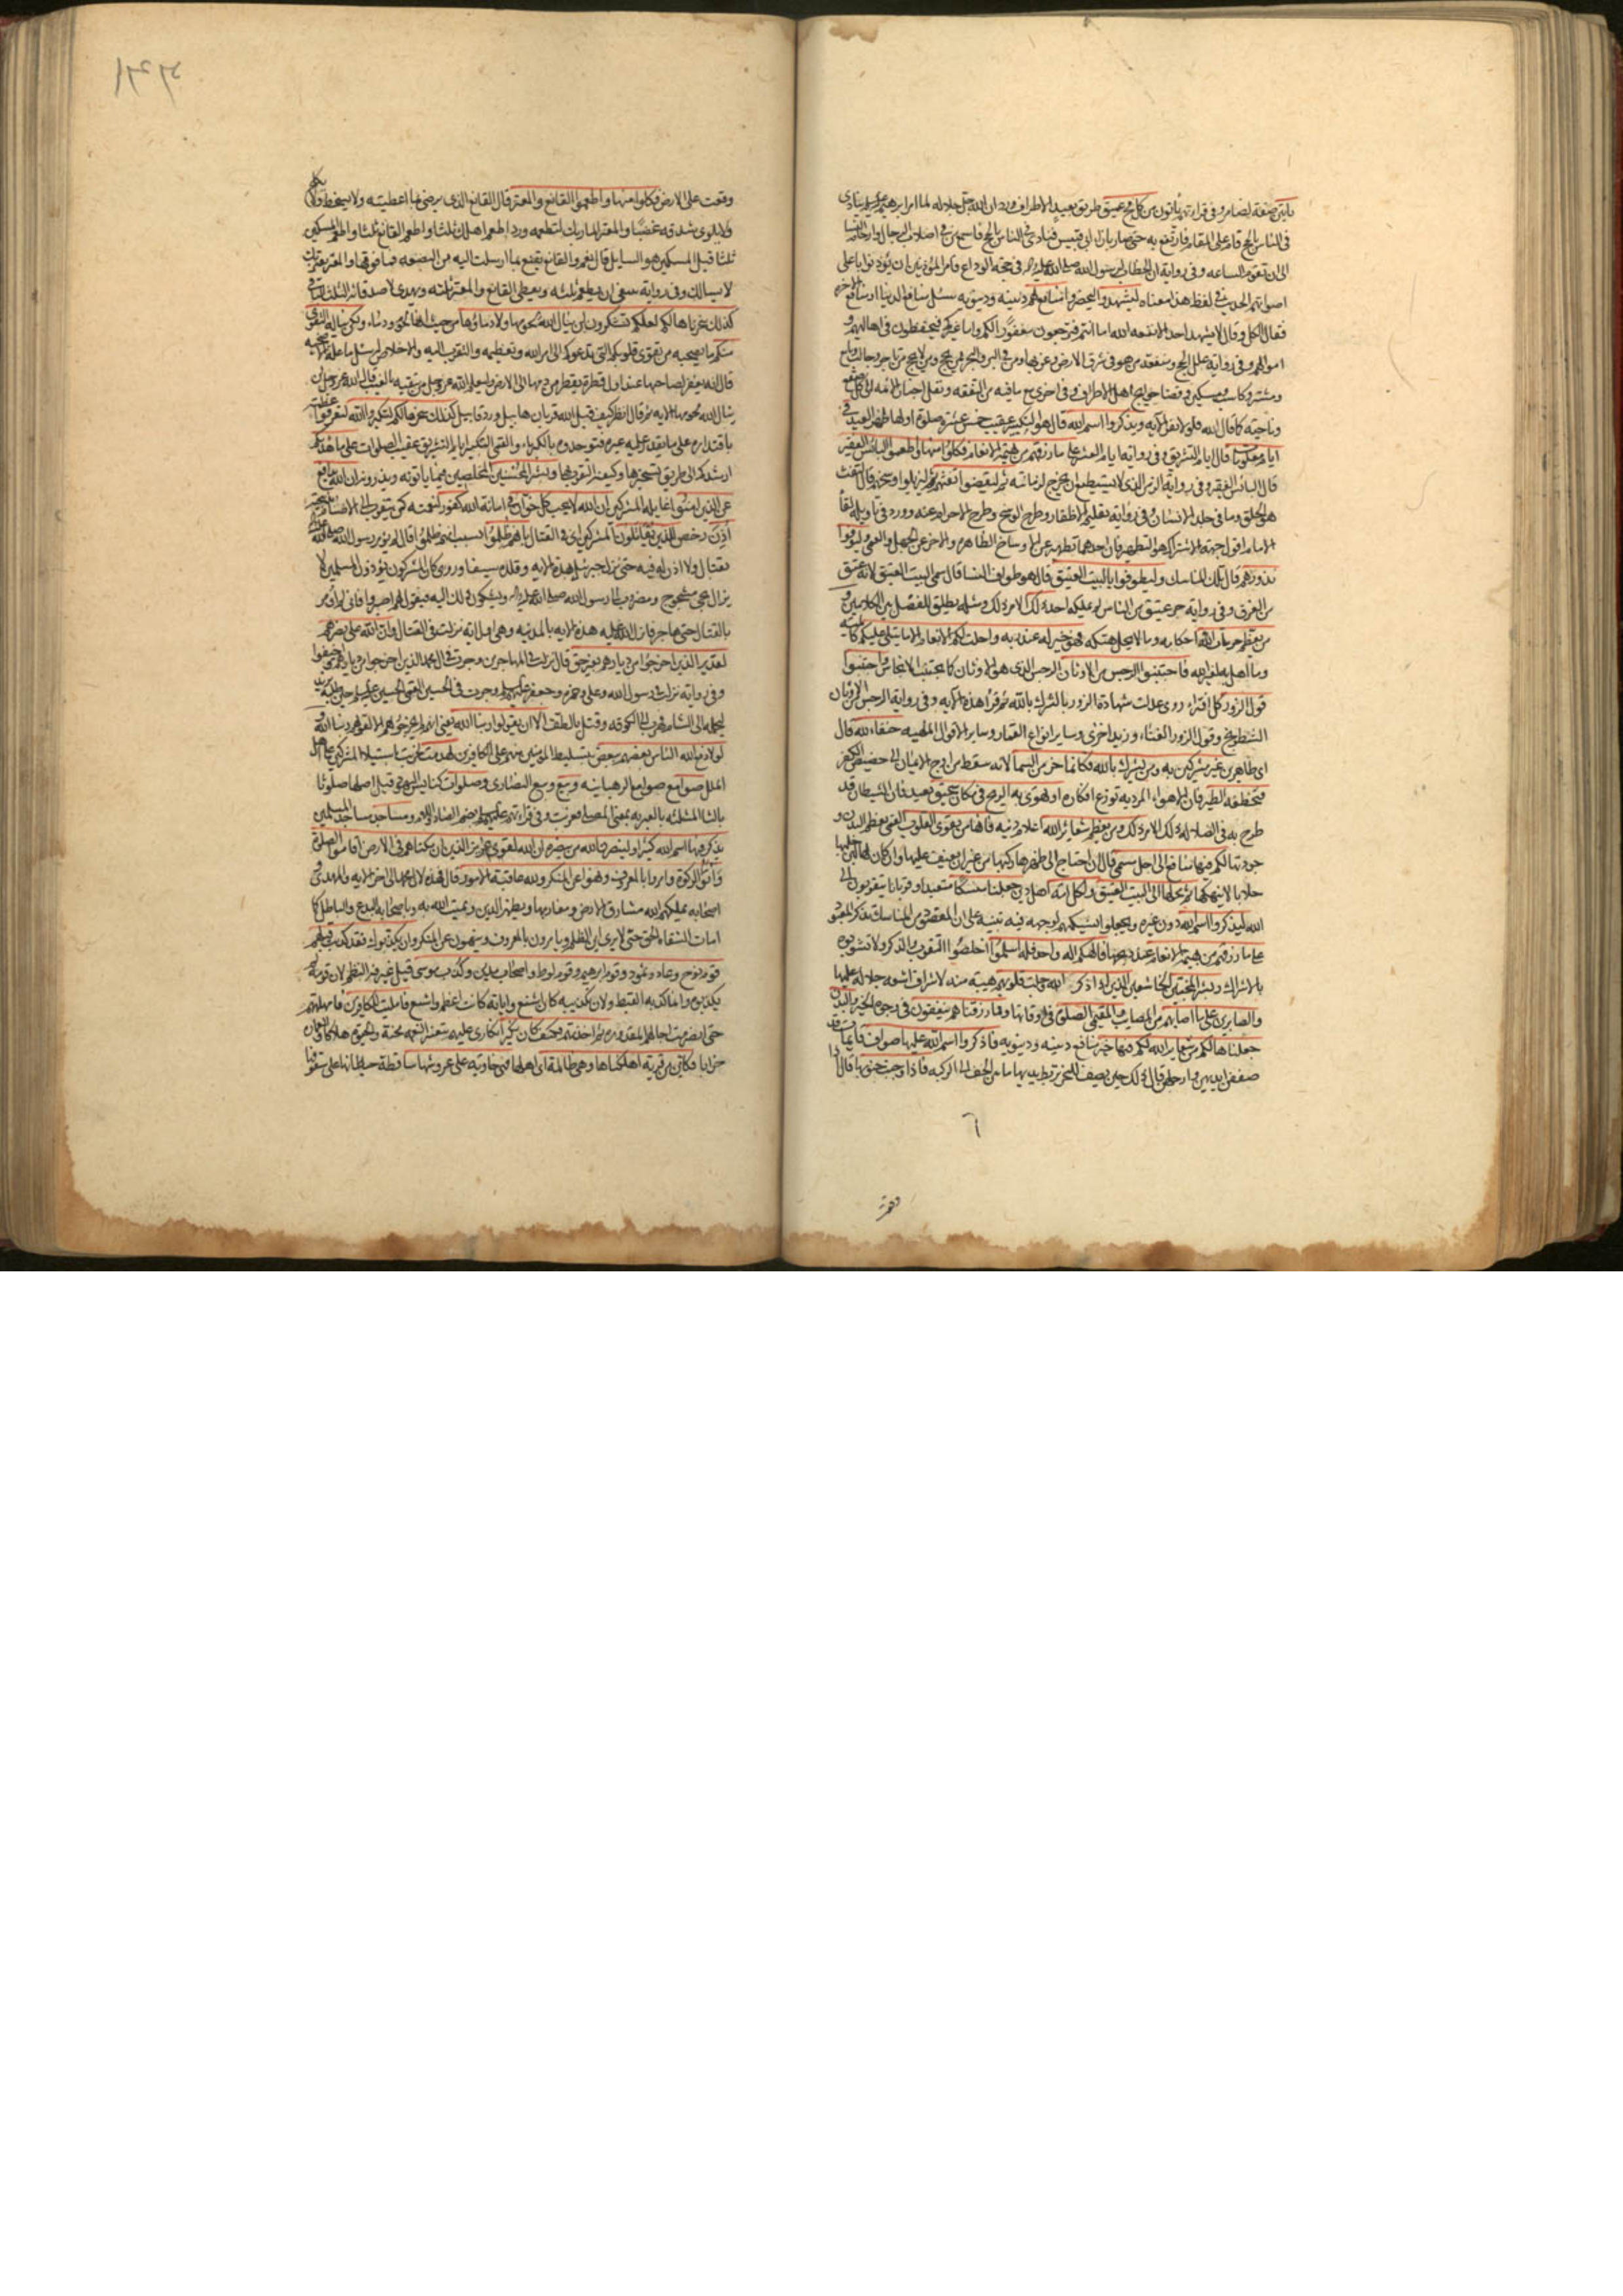 يأتين صفة لضامر وفي قراءتهم يأتون من كل فج عميق طريق بعيد الاطراف ورد ان الله جل جلاله لما امر ابرهيم ينادي
في الناس بالحج قام على المقام فارتفع به حتى صار بازاء ابي قبيس فنادى في الناس بالحج فاسمع من في اصلاب الرجال وارحام النسا
الى ان تقوم الساعه وفي رواية ان رسول الله في حجة الوداع امر المؤذنين ان يؤذنوا باعلى
اصواتهم الحديث في لفظ هذا معناه ليشهدوا ليحضروا منافع لهم دينيه ودنيويه سئل منافع الدنيا او منافع الاخره
فقال الكل وقال لا يشهد احد الا نفعه الله اما انتم فترجعون مغفورا لكم واما غيركم فيحفظون في اهاليهم و
اموالهم وفي رواية علل الحج ومنفعة من هو في شرق الارض وغربها ومن في البر والبحر ممن يحج وممن لا يحج من تاجر وجالب وبايع
ومشتر وكاسب ومسكين وقضا حوايج اهل الاطراف وفي اخرى مع ما فيه من التفقه ونقل اخبار الائمه الى كل صقع
وناحية كما قال الله فلولا نفر الآيه ويذكروا اسم الله قال هو التكبير عقيب خمس عشرة صلوة اولها ظهر العيد في
ايام معلومات قال ايام التشريق وفي رواية ايام العشر على ما رزقهم من بهيمة الانعام فكلوا منها واطعموا البائس الفقير
قال البائس الفقير وفي رواية الزمن الذي لا يستطيع ان يخرج لزمانته ثم ليقضوا تفثهم ثم ليزيلوا وسخهم قال التفث
هو الحلق وما في جلد الانسان وفي رواية تقليم الاظفار وطرح الوسخ وطرح الاحرام عنه وورد في تاويله لقا
الامام اقول جهة الاشتراك هو التطهير فان احدهما تطهير عن الاوساخ الظاهره والاخر عن الجهل والعمى وليوفوا
نذورهم قال تلك المناسك وليطوفوا بالبيت العتيق قال هو طواف النسا قال سمي البيت العتيق لانه عتق
من الغرق وفي رواية حر عتيق من الناس لم يملكه احد ذلك الامر ذلك ومثله يطلق للفصل بين الكلامين و
من يعظم حرمات الله احكامه وما لا يحل هتكه فهو خير له عند ربه واحلت لكم الانعام الا ما يتلى عليكم كالميته
وما اهل به لغير الله فاجتنبوا الرجس من الاوثان الرجس الذي هو الاوثان كما يجتنب الانجاس واجتنبوا
قول الزور كل افتراء روي عدلت شهادة الزور بالشرك بالله ثم قرأ هذه الايه وفي رواية الرجس من الاوثان
الشطرنج وقول الزور الغناء وزيد اخرى وساير انواع القمار وساير الاقوال الملهيه حنفاء لله قال
اي طاهرين غير مشركين به ومن يشرك بالله فكانما خر من السما لانه سقط من اوج الايمان الى حضيض الكفر
فتخطفه الطير فان الاهواء المرديه توزع افكاره او تهوي به الريح في مكان سحيق بعيد فان الشيطان قد
طرح به في الضلاله ذلك الامر ذلك ومن يعظم شعائر الله اعلام دينه فانها من تقوى القلوب القمي تعظيم البدن و
جودتها لكم فيها منافع الى اجل مسمى قال ان احتاج الى ظهرها ركبها من غير ان يعنف عليها وان كان لها لبن حلبها
حلابا لا ينهكها ثم محلها الى البيت العتيق ولكل امة اهل دين جعلنا منسكا متعبدا وقربانا يتقربون الى
الله ليذكروا اسم الله دون غيره ويجعلوا نسيكتهم لوجهه فيه تنبيه على ان المقصود من المناسك تذكر المعبود
على ما رزقهم من بهيمة الانعام عند ذبحها فالهكم اله واحد فله اسلموا اخلصوا التقرب والذكر ولا تشوبوه
بالاشراك وبشر المخبتين الخاشعين الذين اذا ذكر الله وجلت قلوبهم هيبة منه لاشراق اشعه جلاله عليها
والصابرين على ما اصابهم من المصايب والمقيمي الصلوة في اوقاتها ومما رزقناهم ينفقون في وجوه الخير والبدن
جعلناها لكم من شعاير الله لكم فيها خير منافع دينيه ودنيويه فاذكروا اسم الله عليها صواف قايمات قد
صففن ايديهن وارجلهن قال ذلك حين يصف للنحر تربط يديها ما بين الخف الى الركبه فاذا وجبت جنوبها قال اذا
وقعت على الارض فكلوا منها واطعموا القانع والمعتر قال القانع الذي يرضى بما اعطيته ولا يسخط ولا يكلح
ولا يلوي شدقه غضبا والمعتر المار بك لتطعمه ورد اطعم اهلك ثلثا واطعم القانع ثلثا واطعم المسكين
ثلثا قيل المسكين هو السايل قال نعم والقانع يقنع بما ارسلت اليه من البضعه فما فوقها والمعتر يعتريك
لا يسالك وفي رواية ينبغي ان يطعم ثلثه ويعطى القانع والمعتر ثلثه ويهدى لاصدقائه الثلث الباقي
كذلك سخرناها لكم لعلكم تشكرون لن ينال الله لحومها ولا دماؤها من حيث انها لحوم ودماء ولكن يناله التقوى
منكم ما يصحبه من تقوى قلوبكم التي تدعوكم الى امر الله وتعظيمه والتقرب اليه والاخلاص له سئل ما علة الاضحيه
قال انه يغفر لصاحبها عند اول قطرة يقطر من دمها الى الارض وليعلم الله عز وجل من يتقيه بالغيب قال الله عز وجل لن
ينال الله لحومها الايه ثم قال انظر كيف قبل الله قربان هابيل ورد قابيل كذلك سخرها لكم لتكبروا الله لتعرفوا عظمته
باقتداره على ما لا يقدر عليه غيره فتوحدوه بالكبرياء والقمي التكبير ايام التشريق عقيب الصلوات على ما هداكم
ارشدكم الى طريق تسخيرها وكيفية التقرب بها وبشر المحسنين المخلصين فيما ياتونه ويذرونه ان الله يدافع
عن الذين امنوا غايلة المشركين ان الله لا يحب كل خوان في امانة الله كفور لنعمته كمن يتقرب الى الاصنام بذبيحته
أذن رخص للذين يقاتلون المشركين اي في القتال بانهم ظلموا بسبب انهم ظلموا قال لم يؤمر رسول الله
بقتال ولا اذن له فيه حتى نزل جبرئيل بهذه الايه وقلده سيفا وروي كان المشركون يؤذون المسلمين لا
يزال يجيء مشجوج ومضروب الى رسول الله ويشكون ذلك اليه فيقول لهم اصبروا فاني لم أومر
بالقتال حتى هاجر فانزل الله عليه هذه الايه بالمدينه وهي اول اية نزلت في القتال وان الله على نصرهم
لقدير الذين اخرجوا من ديارهم بغير حق قال نزلت في المهاجرين وجرت في ال محمد الذين اخرجوا من ديارهم واخيفوا
وفي رواية نزلت في رسول الله وعلي وحمزه وجعفر وجرت في الحسين القمي الحسين حين طلبه يزيد
ليحمله الى الشام فهرب الى الكوفه وقتل بالطف الا ان يقولوا ربنا الله يعني انهم لم يخرجوهم الا لقولهم ربنا الله و
لولا دفع الله الناس بعضهم ببعض بتسليط المومنين منهم على الكافرين لهدمت لخربت باستيلاء المشركين على اهل
الملل صوامع صوامع الرهبانيه وبيع وبيع النصارى وصلوات كنايس اليهود قيل اصلها صلوثا
بالثا المثلثه بالعبريه بمعنى المصلى فعربت وفي قراءتهم بضم الصاد واللام ومساجد مساجد المسلمين
يذكر فيها اسم الله كثيرا ولينصرن الله من ينصره ان الله لقوي عزيز الذين ان مكناهم في الارض اقاموا الصلوة
وآتوا الزكوة وامروا بالمعروف ونهوا عن المنكر ولله عاقبة الامور قال فهذه لآل محمد الى اخر الايه والمهدي و
اصحابه يملكهم الله مشارق الارض ومغاربها ويظهر الدين ويميت الله به وباصحابه البدع والباطل كما
امات السفهاء الحق حتى لا يرى اين الظلم ويامرون بالمعروف وينهون عن المنكر وان يكذبوك فقد كذبت قبلهم
قوم نوح وعاد وثمود وقوم ابرهيم وقوم لوط واصحاب مدين وكذب موسى قيل غير فيه النظم لان قومه لم
يكذبوه وانما كذبه القبط ولان تكذيبه كان اشنع واياته كانت اعظم واشيع فامليت للكافرين فامهلتهم
حتى انصرمت اجالهم المقدره ثم اخذتهم فكيف كان نكير انكاري عليهم بتغيير النعمه محنة والحيوة هلاكا والعماره
خرابا فكاين من قرية اهلكناها وهي ظالمة اي اهلها فهي خاوية على عروشها ساقطة حيطانها على سقوفها